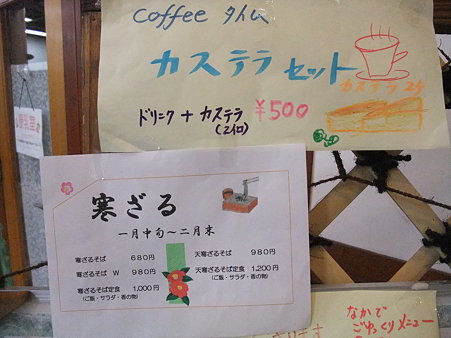 Coffee タイム
カステラ セット
カステラ 2ヶ
ドリンク + カステラ ¥500
(2個)
寒ざる
一月中旬〜二月末
寒ざるそば 680円
寒ざるそば W 980円
寒ざるそば定食 1,000円
(ご飯・サラダ・香の物)
天寒ざるそば 980円
天寒ざるそば定食 1,200円
(ご飯・サラダ・香の物)
なかで
ごゆっくりメニュー